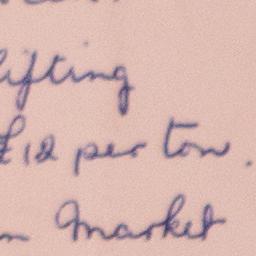 lifting
£12 per ton.
Market